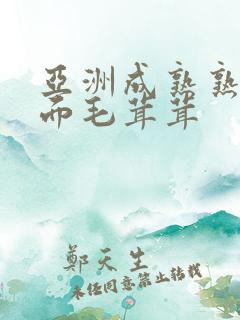 亞洲成熟熟
而毛茸茸
鄭天生
未经同意禁止转载